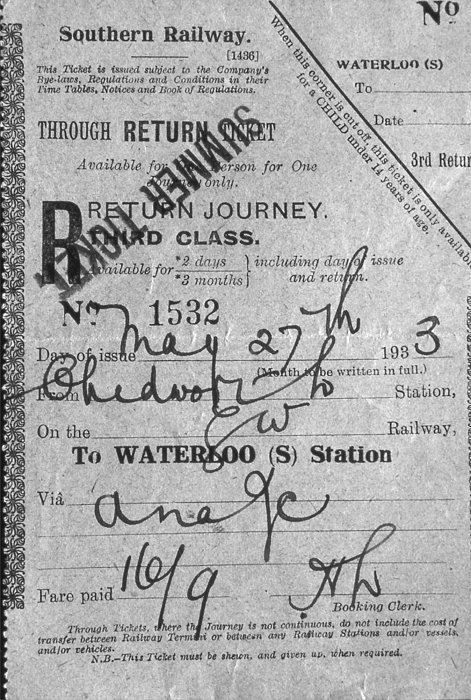 Nº
Southern Railway.
[1436]
This Ticket is issued subject to the Company's
Bye-laws, Regulations and Conditions in their
Time Tables, Notices and Book of Regulations.
When this corner is cut off, this ticket is only available
for a CHILD under 14 years of age.
WATERLOO (S)
To
Date
3rd Retur
THROUGH RETURN TICKET
Available for One Person for One
Journey only.
SUMMER TICKET
R
RETURN JOURNEY.
THIRD CLASS.
Available for *2 days } including day of issue
*3 months } and return.
Nº 1532
Day of issue May 27th 1933
(Month to be written in full.)
From Chedworth Station,
On the GW Railway,
To WATERLOO (S) Station
Viâ
Fare paid 16/9
Booking Clerk.
Through Tickets, where the Journey is not continuous, do not include the cost of
transfer between Railway Termini or between any Railway Stations and/or vessels,
and/or vehicles.
N.B.—This Ticket must be shewn, and given up, when required.